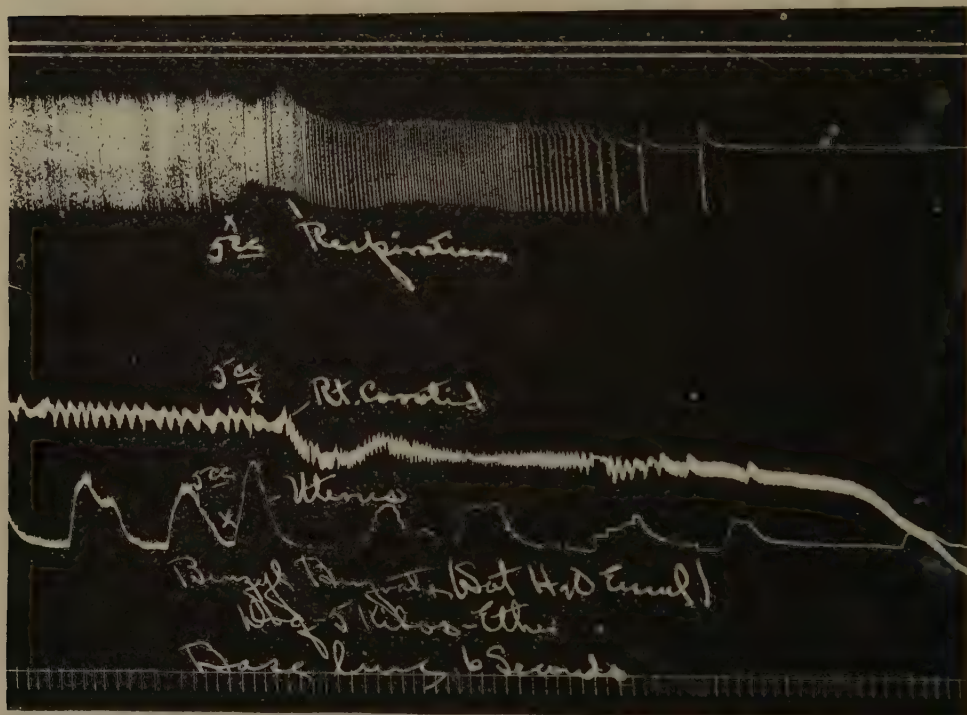 x
5cc
Respiration
5cc
x
Rt. Carotid
5cc
x
Uterus
Benzyl Benzoate (Sat H2O Emul)
Dog 5 Kilos-Ether
Base line 6 Seconds